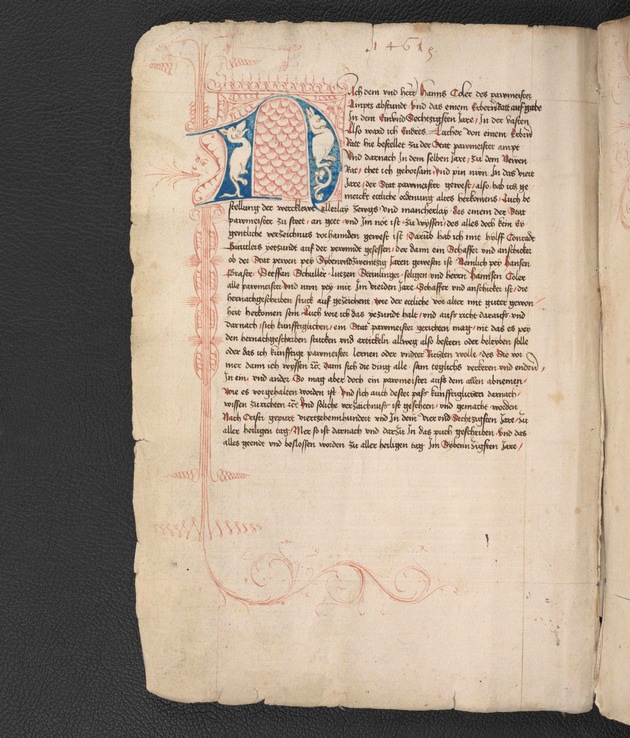 1461
Nach dem vnd herr hanns Coler des pawmeisters
Ampts abstunde Vnd das einem Erbern Ratt auf gabe
In dem Einvndsechzigsten Jare / In der vasten
Also ward ich Endres Tucher von einem Erbern
Ratt hie bestellet zu der Stat pawmeister ampt
Vnd darnach In dem selben Jare / zu dem Newen
Rat / thet ich gehorsam / vnd pin nun In das vierd
Jare / der Stat pawmeister gewest / also hab ich ge
merckt ettliche ordenung altes herkomens / Auch be
stellung der werckleut allerlay zewgs vnd mancherlay das einem der Stat
pawmeister zu steet / an geet vnd Im not ist zu wyssen / des alles doch kein ey
gentliche verzeichnuß vorhannden gewest ist / Darub hab ich mit hilff Conrade
yetzunde auf der peunnde gesessen / der dann ein Schaffer vnd anschicker
ob der Stat pewen pey Sybenvndzweintzig Jaren gewesen ist Nemlich pey hansen
Graser Steffan Schuller lutzen Steinlinger seligen vnd herrn hannsen Coler
alle pawmeister vnd nun pey mir Im vierden Jare Schaffer vnd anschicker ist / die
hernachgeschriben stuck auf gezeichent / wie der ettliche vor alter mit guter gewon
heit herkomen sein Auch wie ich das yezund halt / vnd auß richt daraus vnd
darnach / sich kunfftigclichen / ein Stat pawmeister gerichten mag / nit das es pey
den hernachgeschriben stucken vnd artickeln allweg also besteen oder beleyben solle
oder das ich kunfftige pawmeister lernen oder vnderrichten wolle / des Sie vor
mer dann ich wyssen zc dann sich die ding alle sam teglichs verkeren vnd enden /
In ein vnd ander So mag aber doch ein pawmeister auß dem allen abnemen /
wie es vorgehalten worden ist Vnd sich auch dester paß kunfftigclichen darnach /
wissen zurichten zc Vnd soliche verzeichnuß ist gescheen / vnd gemacht worden
Nach Cristi gepurt viertzehenhundert vnd In dem vier vnd Sechzigsten Jare / zu
aller heiligen tag / Mer so ist darnach vnd darzu In das puch geschriben vnd das
alles geendt vnd beslossen worden zu aller heiligen tag Im Sybennzigsten Jare /